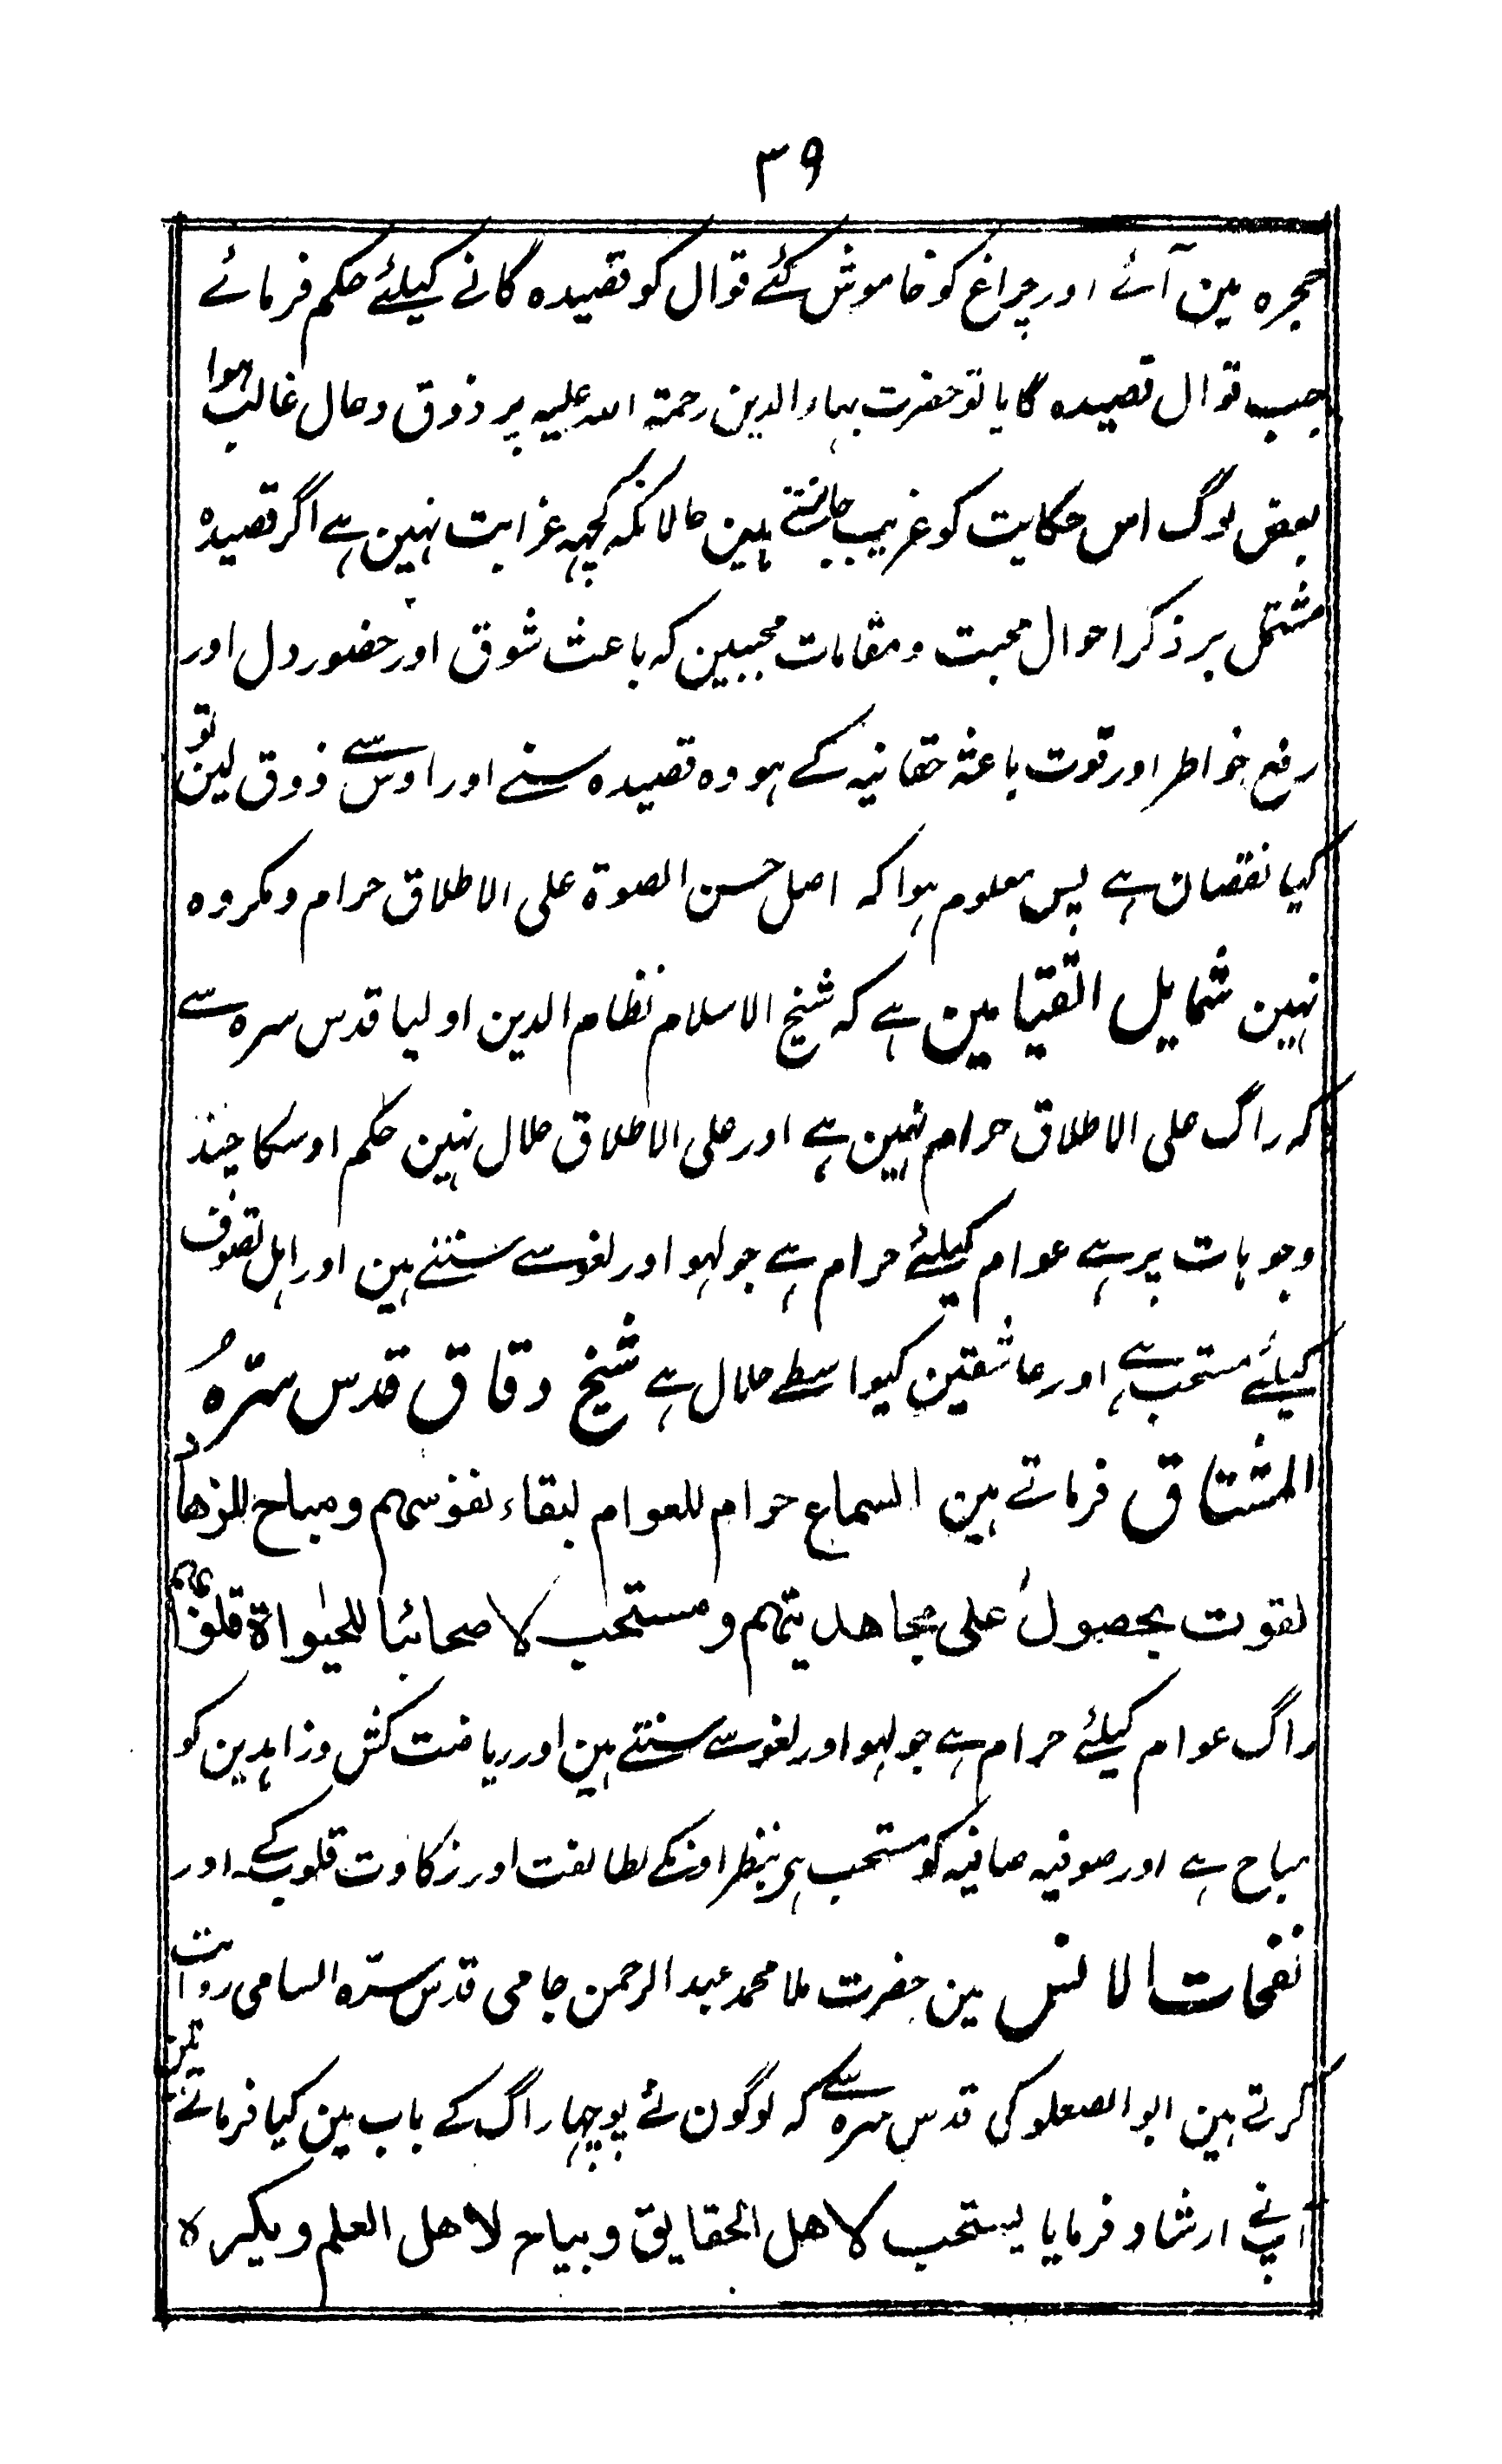 ۳۹
حجرہ مین آئے اور چراغ کو خاموش کئے قوال کو قصیدہ گانے کیلئے حکم فرمائے
جب قوال قصیدہ گایا تو حضرت بہاء الدین رحمتہ اللہ علیہ پر ذوق وحال غالب ہوا
بعض لوگ اس حکایت کو غریب جانتے ہین حالانکہ کچہہ غرابت نہین ہے اگر قصیدہ
مشتمل بر ذکر احوال محبت ومقامات محبین کہ باعث شوق اور حضور دل اور
رفع خواطر اور قوت باعثہ حقانیہ کے ہو وہ قصیدہ سنے اور اوس سے ذوق لین تو
کیا نقصان ہے پس معلوم ہوا کہ اصل حسن الصوۃ علی الاطلاق حرام ومکروہ
نہین شمایل اتقیا مین ہے کہ شیخ الاسلام نظام الدین اولیا قدس سرہ سے
کہ راگ علی الاطلاق حرام نہین ہے اور علی الاطلاق حلال نہین حکم اوسکا چند
وجوہات پر ہے عوام کیلئے حرام ہے جو لہو اور لغو سے سنتے ہین اور اہل تصوف
کیلئے مستحب ہے اور عاشقین کیواسطے حلال ہے شیخ دقاق قدس سرّہُ
المشتاق فرماتے ہین السماع حرام للعوام لبقاء نفوسہم ومباح للزھاد
لقوت بحصول علی مجاھدیتہم ومستحب لاصحابنا للحیواۃ قلوبہم
راگ عوام کیلئے حرام ہے جو لہو اور لغو سے سنتے ہین اور ریاضت کش وزاہدین کو
مباح ہے اور صوفیہ صافیہ کو مستحب ہی بنظر اونکے لطائفت اور زکاوت قلوب کے اور
نفحات الانس مین حضرت ملا محمد عبد الرحمن جامی قدس سرّہ السامی روایت
کرتے ہین ابو الصعلوکی قدس سرہ سے کہ لوگون نے پوچہا راگ کے باب مین کیا فرماتے ہین
آپنے ارشاد فرمایا یستحب لاھل الحقایق ویباح لاھل العلم ویکرہ